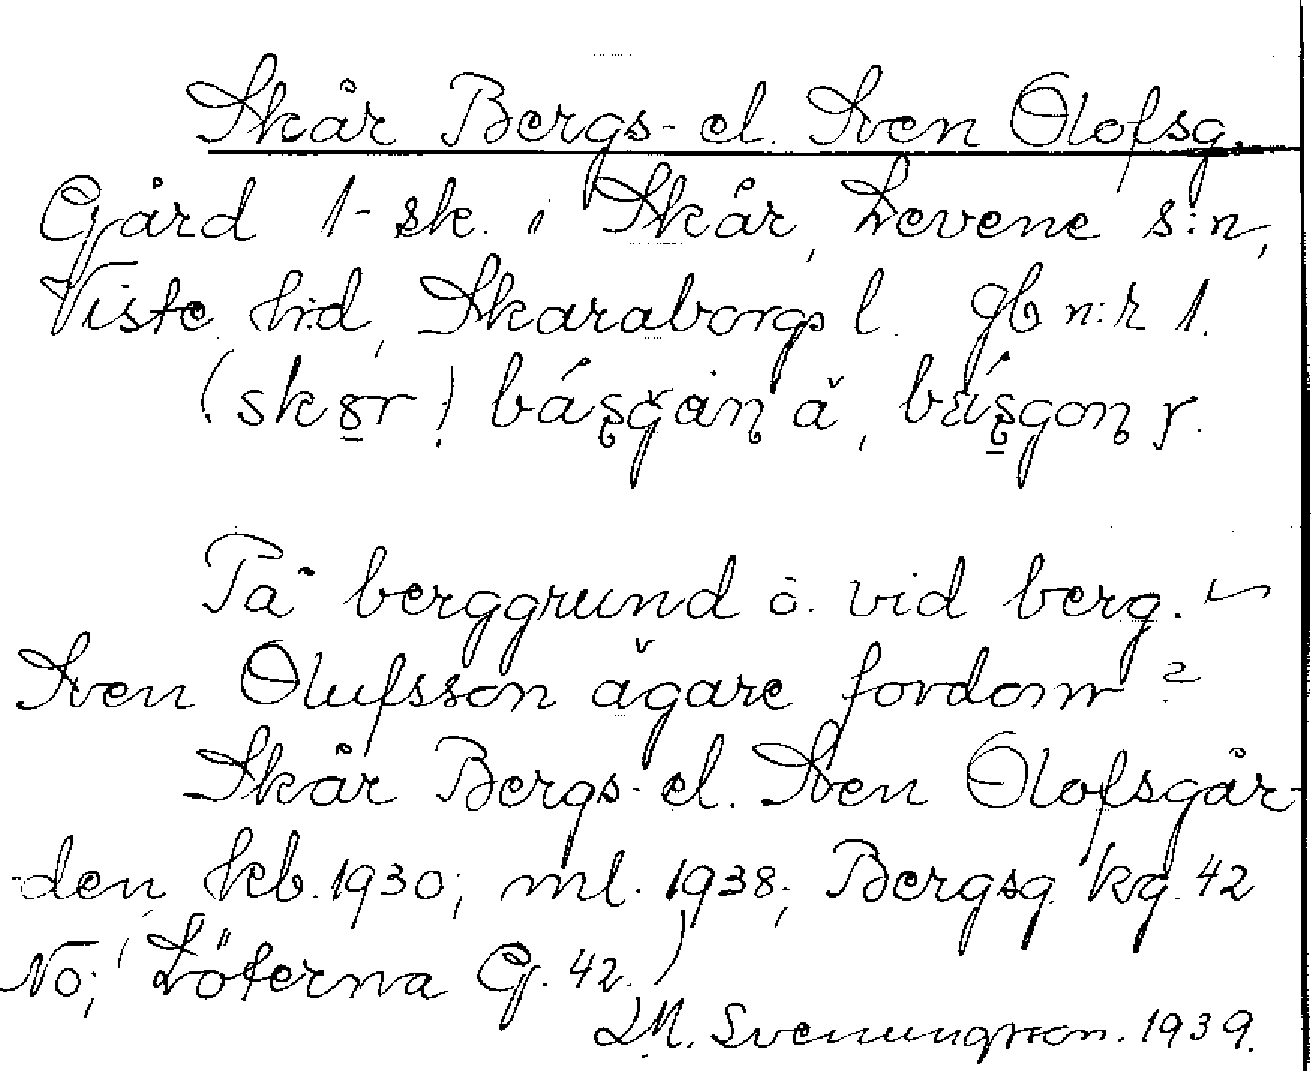 Skår Bergs- el. Sven Olofsg.
Gård 1 sk. i Skår, Levene s:n,
Viste h:d, Skaraborgs l. Gb n:r 1.
(skər)
På berggrund o. vid berg.
Sven Olufsson ägare fordom?
Skår Bergs- el. Sven Olofsgår-
den, kb. 1930; ml. 1938; Bergsg kg. 42
No; (Löterna G. 42.)
Svenungsson. 1939.